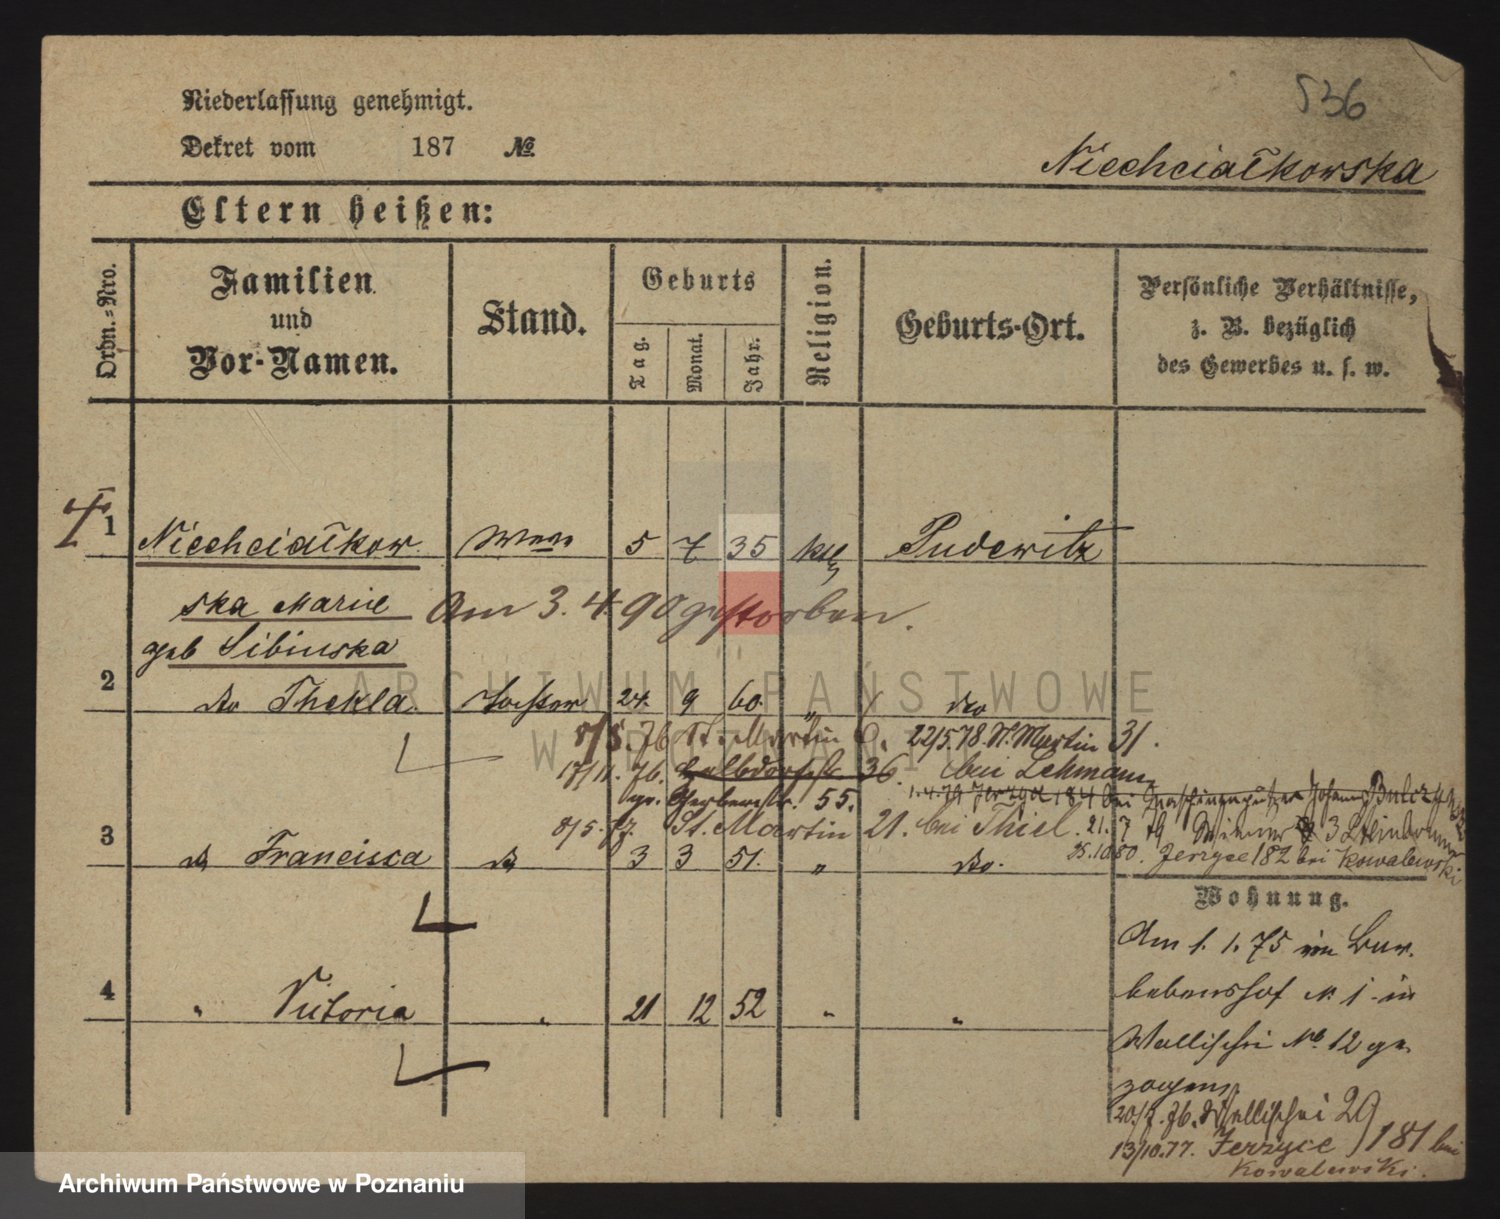 536
Niederlassung genehmigt.
Dekret vom 187 №
Niechciałkowska
Eltern heißen:
Ordn.-Nro.
Familien und Vor-Namen.
Stand.
Geburts
Tag.
Monat.
Jahr.
Religion.
Geburts-Ort.
Persönliche Verhältnisse,
z. B. bezüglich
des Gewerbes u. s. w.
1 Niechciałkow Wwe 5 7 35 kth Pudewitz
ska Marie Am 3. 4. 90 gestorben.
geb Sibinska
2 do Thekla Tochter 24. 9 60. " do
8/5. 76 St. Martin 6. 22/5.78. St. Martin 31.
17/11. 76. Halbdorfstr. 36. bei Lehmann
gr. Gerberstr. 55. 1.4.79 Jerzyce 184 bei
8/5. 77. St. Martin 21. bei Thiel. 21. 7 79
3 do Francisca do 3 3 51. " do.
25.10.80. Jerzyce 182 bei Kowalewski
Wohnung.
4 " Victoria " 21 12 52 " "
Am 1. 1. 75 im
№ 1 in
Wallischei № 12 ge
zogen
20/7. 76. Wallischei 29
13/10.77. Jerzyce 181 bei
Kowalewski.
ARCHIWUM PAŃSTWOWE
W POZNANIU
Archiwum Państwowe w Poznaniu